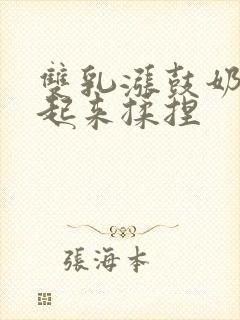 雙乳漲鼓奶
起来揉捏
張海本